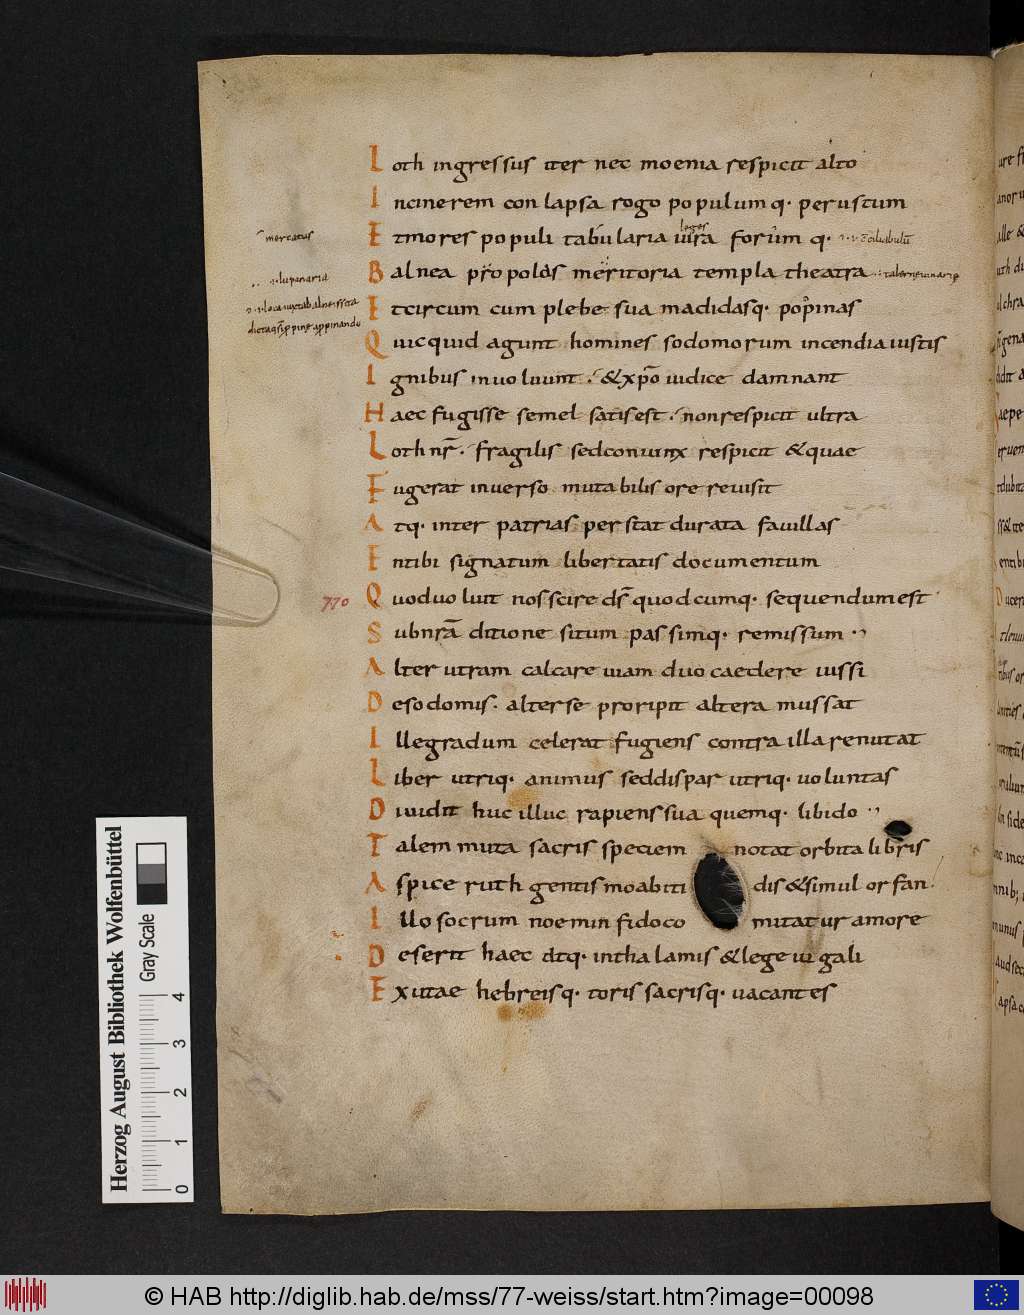 Loth ingressus iter nec moenia respicit alto
Incinerem conlapsa rogo populumq· perustum
leges
Etmores populi tabularia iura forum q·
mercatus
Balnea propolas meritoria templa theatra
·i· lupanaria
Etcircum cum plebe sua madidasq· popinas
Quicquid agunt homines sodomorum incendia iustis
Ignibus inuoluunt· & xp̄o iudice damnant
Haec fugisse semel satisest· nonrespicit ultra
Loth nr̄· fragilis sedconiunx respicit &quae
Fugerat inuerso mutabilis ore reuisit
Atq· inter patrias perstat durata fauillas
Entibi signatum libertatis documentum
770 Quoduoluit nosscire ds̄ quodcumq· sequendumest
Subnr̄a ditione situm passimq· remissum
Alterutram calcare uiam duo caedere iussi
Desodomis· alterse proripit altera mussat
Illegradum celerat fugiens contra illa renutat
Liber utriq· animus seddispar utriq· uoluntas
Diuidit huc illuc rapiens sua quemq· libido
Talem muta sacris speciem notat orbita libris
Aspice ruth gentis moabiti dis &simul orfan·
Illo socrum noemin fidoco mutatur amore
Deserit haec atq· inthalamis &lege iugali
Exutae hebreisq· toris sacrisq· uacantes
Herzog August Bibliothek Wolfenbüttel
Gray Scale
0 1 2 3 4
© HAB http://diglib.hab.de/mss/77-weiss/start.htm?image=00098